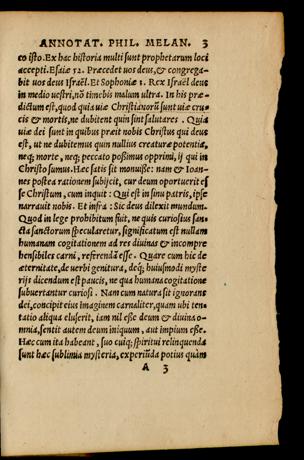 ANNOTAT. PHIL. MELAN. 3
co isto. Ex hac historia multi sunt prophetarum loci
accepti. Esaiæ 52. Præcedet uos deus, & congrega-
bit uos deus Israël. Et Sophoniæ 3. Rex Israël deus
in medio uestri, nō timebis malum ultra. In his præ-
dictum est, quod quia uiæ Christianorū sunt uiæ cru-
cis & mortis, ne dubitent quin sint salutares. Quia
uiæ dei sunt in quibus præit nobis Christus qui deus
est, ut ne dubitemus quin nullius creaturæ potentia,
neq; morte, neq; peccato poßimus opprimi, ij qui in
Christo sumus. Hæc satis sit monuiße: nam & Ioan-
nes postea rationem subijcit, cur deum oportuerit es
se Christum, cum inquit: Qui est in sinu patris, ipse
narrauit nobis. Et infra: Sic deus dilexit mundum.
Quod in lege prohibitum fuit, ne quis curiosius san-
cta sanctorum specularetur, significatum est nullam
humanam cogitationem ad res diuinas & incompre
hensibiles carni, referendā esse. Quare cum hic de
æternitate, de uerbi genitura, deq; huiusmodi myste
rijs dicendum est paucis, ne qua humana cogitatione
subuertantur curiosi. Nam cum natura sit ignorans
dei, concipit eius imaginem carnaliter, quam ubi ten-
tatio aliqua eluserit, iam nil eße deum & diuina o-
mnia, sentit autem deum iniquum, aut impium eße.
Hæc cum ita habeant, suo cuiq; spiritui relinquenda
sunt hæc sublimia mysteria, experiūda potius quàm
A 3